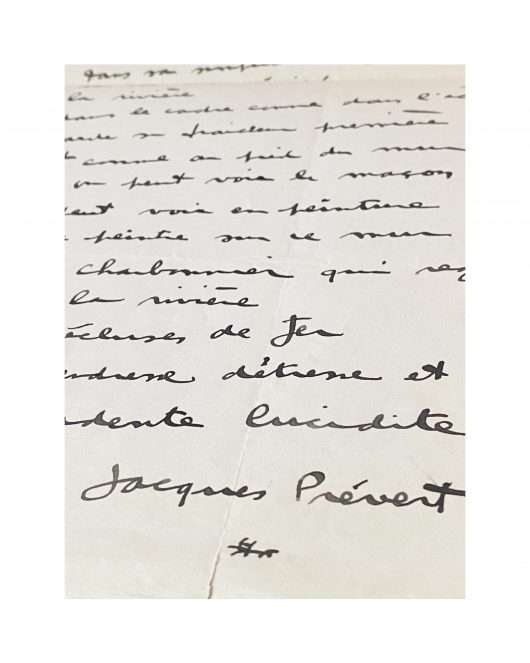 dans sa
la rivière
dans le cadre comme dans l'é
sa fraîcheur première
comme au pied du mur
on peut voir le maçon
peut voir en peinture
peintre sur ce mur
charbonnier qui reg
la rivière
écluses de fer
endresse détresse et
dente lucidité
Jacques Prévert